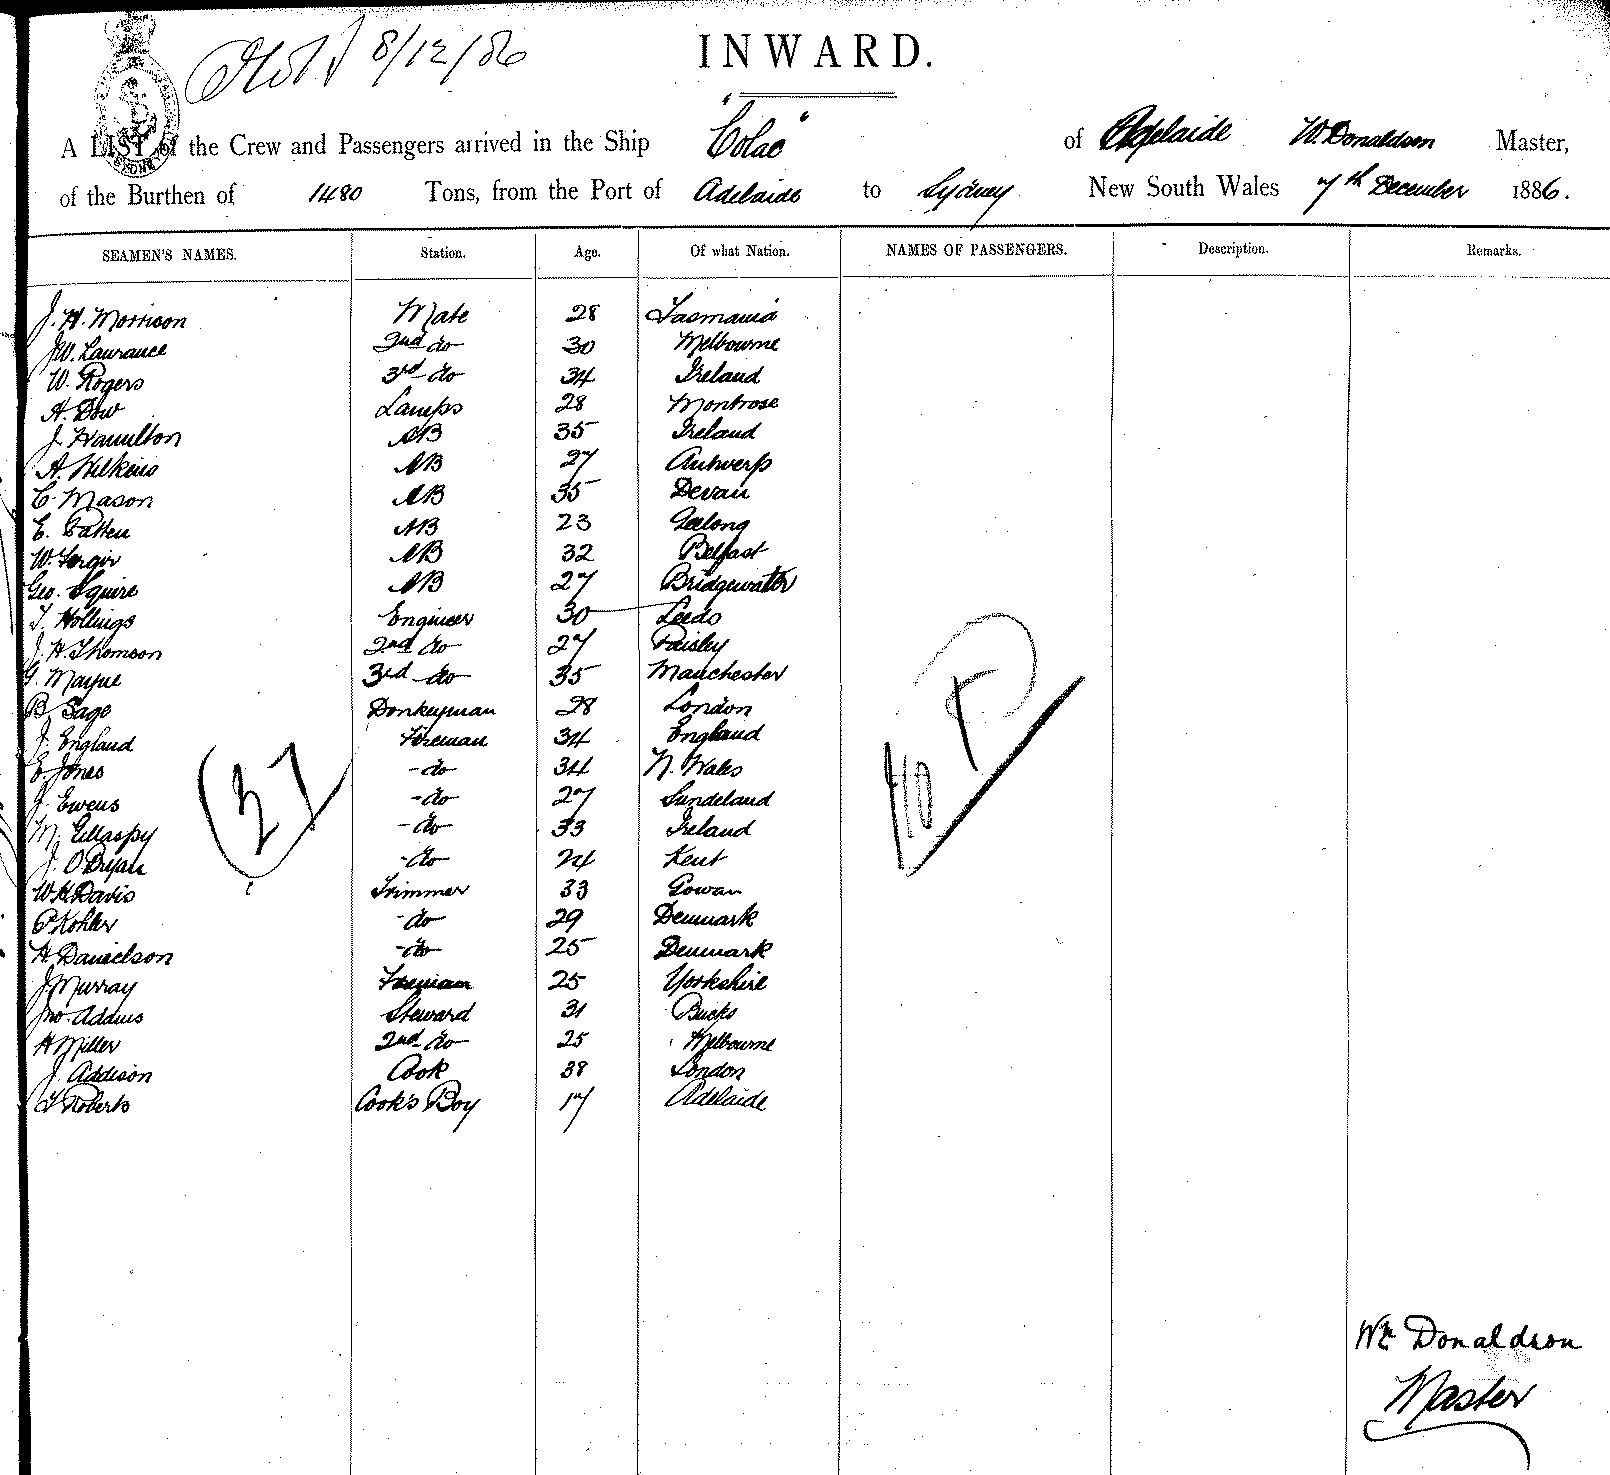 8/12/86
INWARD.
A LIST of the Crew and Passengers arrived in the Ship "Colac" of Adelaide W. Donaldson Master,
of the Burthen of 1480 Tons, from the Port of Adelaide to Sydney New South Wales 7th December 1886.
SEAMEN'S NAMES. Station. Age. Of what Nation. NAMES OF PASSENGERS. Description. Remarks.
J. H. Morrison Mate 28 Tasmania
J.W. Laurance 2nd do 30 Melbourne
W. Rogers 3rd do 34 Ireland
A. Dow Lamps 28 Montrose
J. Hamilton AB 35 Ireland
A. Wilkins AB 27 Antwerp
C. Mason AB 35 Devan
E. Patten AB 23 Geelong
W. AB 32 Belfast
Geo. Squire AB 27 Bridgewater
T. Hollings Engineer 30 Leeds
J. H. Thomson 2nd do 27 Paisley
G. Mayne 3rd do 35 Manchester
B. Sage Donkeyman 28 London
J. England Fireman 34 England
E. Jones - do 34 N. Wales
J. Ewens - do 27 Sundeland
M. Gillaspy - do 33 Ireland
J. O Bryan - do 24 Kent
W H Davis Trimmer 33 Gowan
P. Kohler - do 29 Denmark
H. Danielson - do 25 Denmark
J. Murray Fireman 25 Yorkshire
Jno. Addius Steward 31 Bucks
H Miller 2nd do 25 Melbourne
J. Addison Cook 38 London
T Roberts Cook's Boy 17 Adelaide
(27)
No P
Wm Donaldson
Master